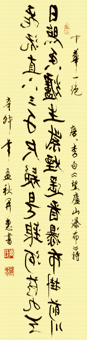 華一絕 唐李白望廬山瀑布詩
日照香爐生紫煙遙看瀑布掛前川
飛流直下三千尺疑是銀河落九天
年 秋 書